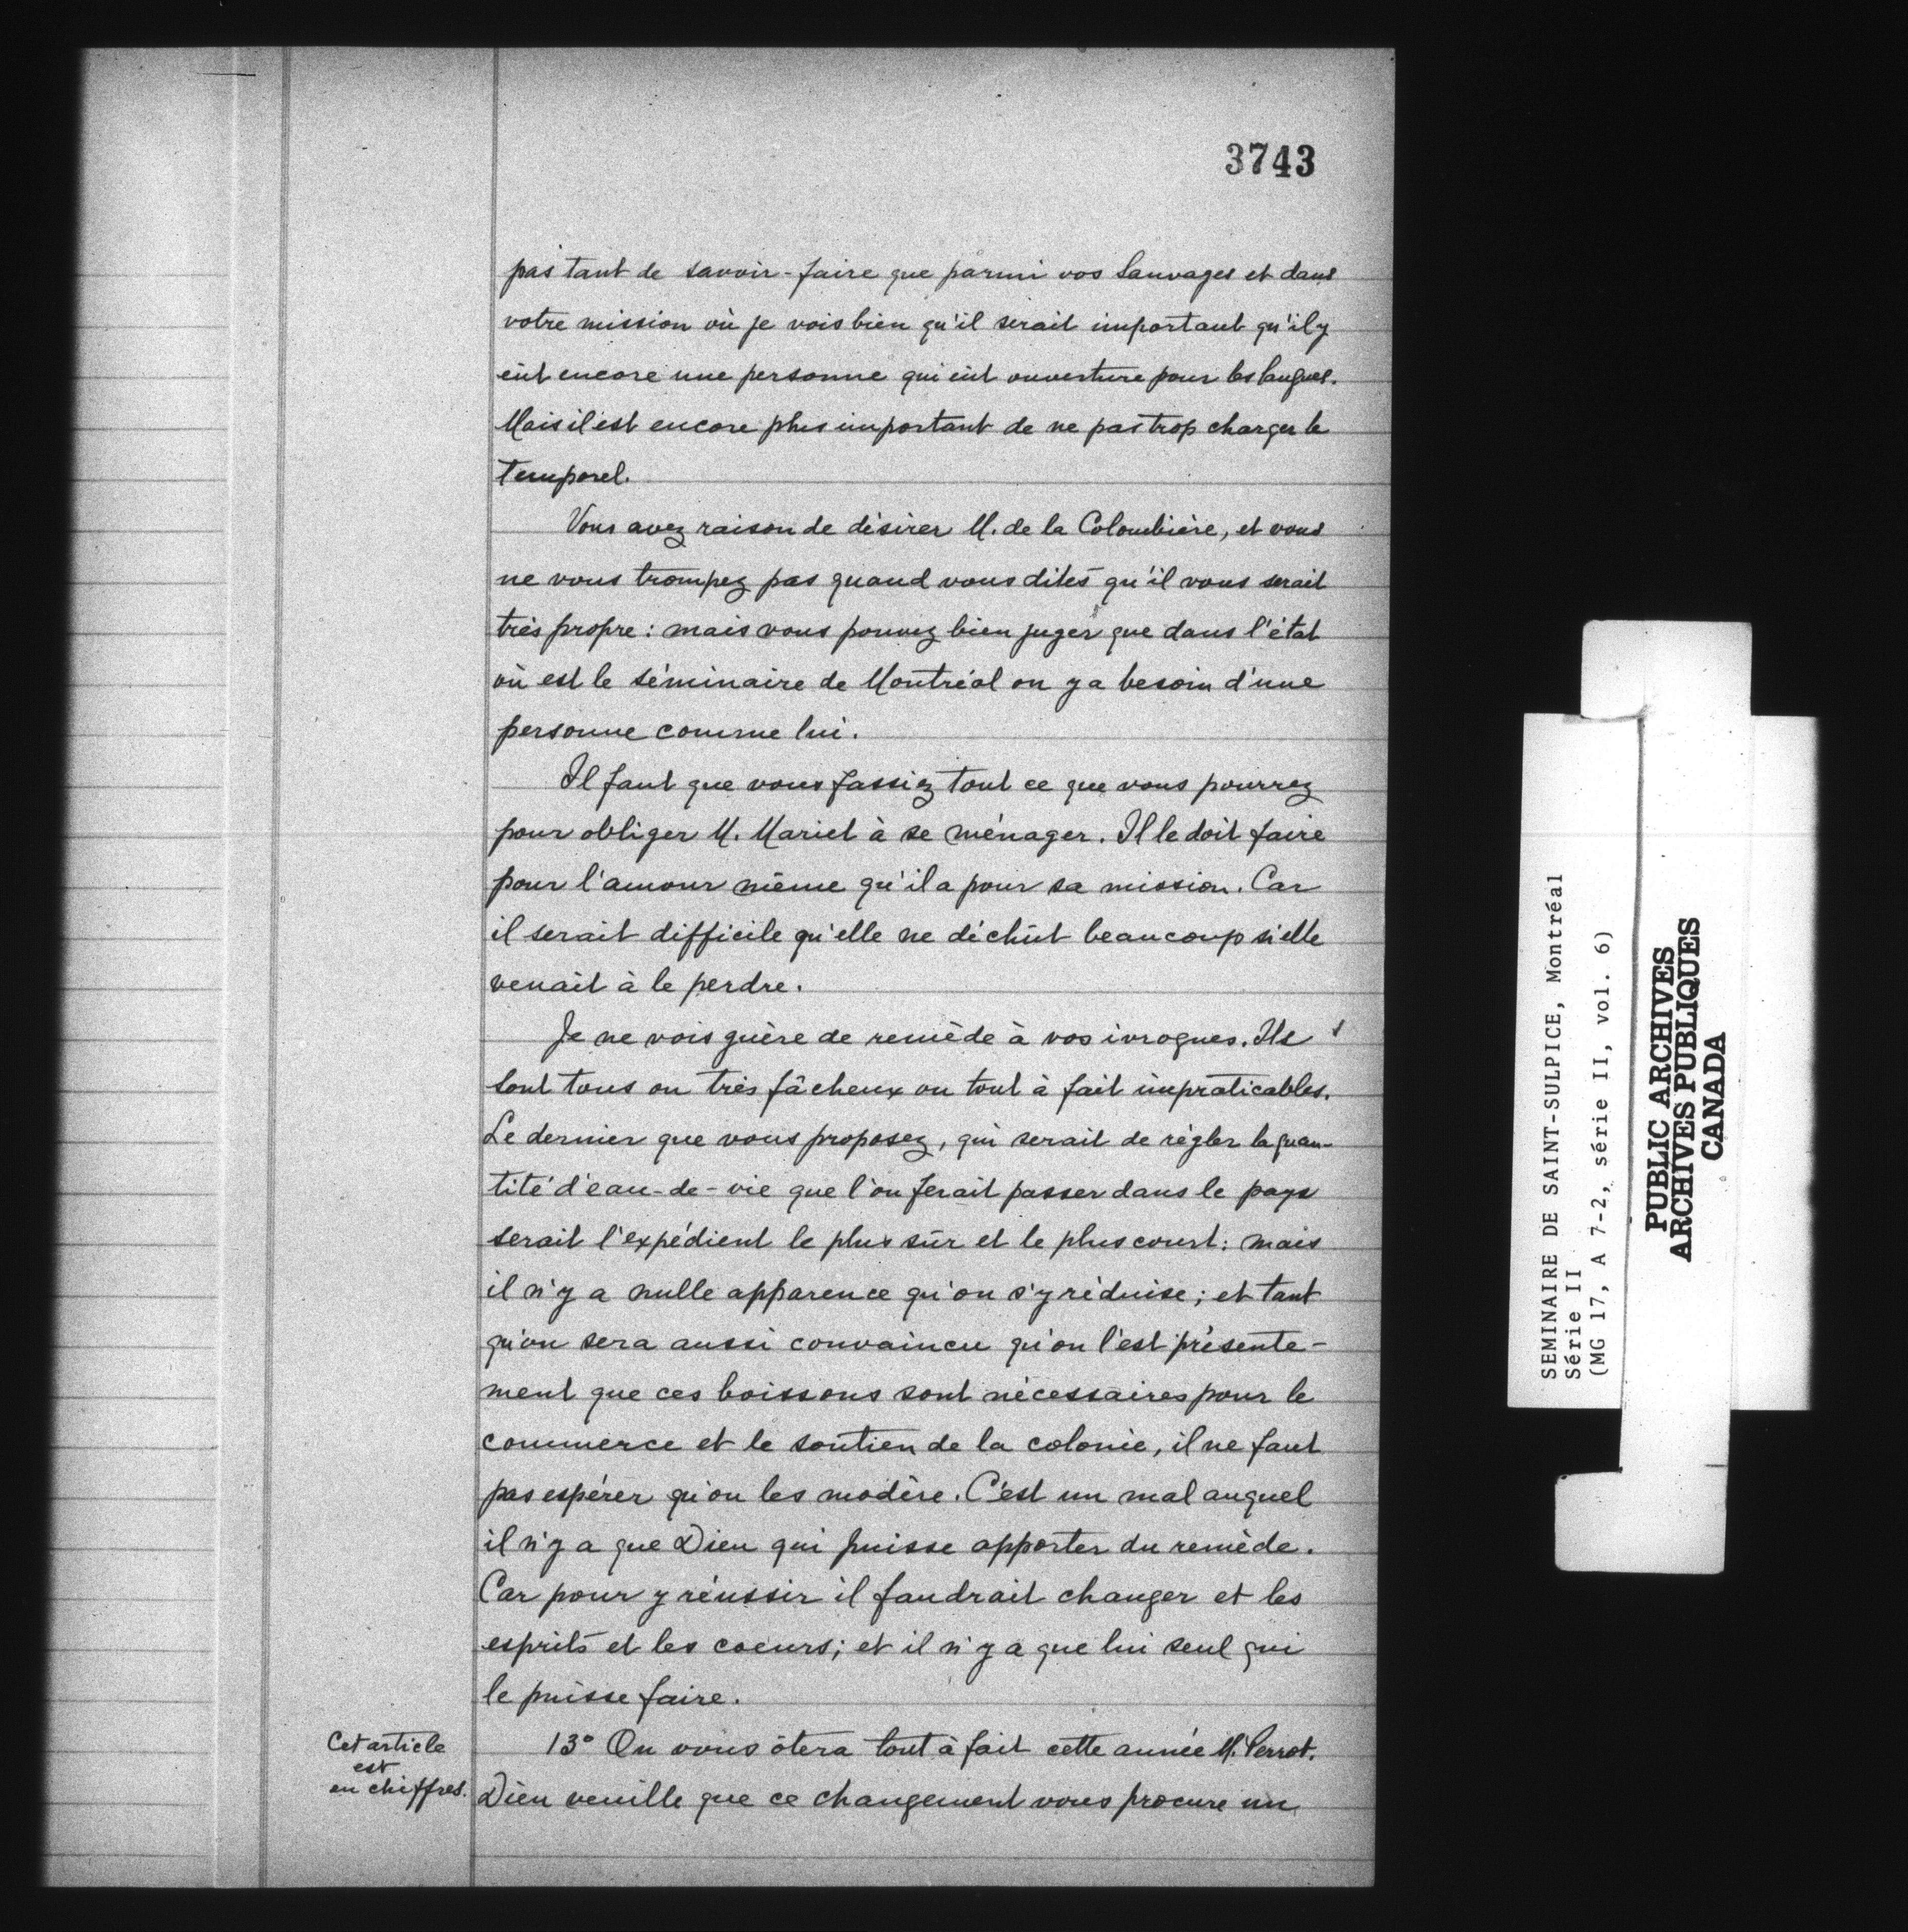 3743
pas tant de savoir-faire que parmi vos Sauvages et dans
votre mission où je vois bien qu'il serait important qu'il y
eût encore une personne qui eût ouverture pour les langues.
Mais il est encore plus important de ne pas trop charger le
temporel.
Vous avez raison de désirer M. de la Colombière, et vous
ne vous trompez pas quand vous dites qu'il vous serait
très propre : mais vous pouvez bien juger que dans l'état
où est le séminaire de Montréal on y a besoin d'une
personne comme lui.
Il faut que vous fassiez tout ce que vous pourrez
pour obliger M. Mariet à se ménager. Il le doit faire
pour l'amour même qu'il a pour sa mission. Car
il serait difficile qu'elle ne déchût beaucoup si elle
venait à le perdre.
Je ne vois guère de remède à vos ivrognes. Ils
sont tous ou très fâcheux ou tout à fait impraticables.
Le dernier que vous proposez, qui serait de régler la quan-
tité d'eau-de-vie que l'on ferait passer dans le pays
serait l'expédient le plus sûr et le plus court : mais
il n'y a nulle apparence qu'on s'y réduise ; et tant
qu'on sera aussi convaincu qu'on l'est présente-
ment que ces boissons sont nécessaires pour le
commerce et le soutien de la colonie, il ne faut
pas espérer qu'on les modère. C'est un mal auquel
il n'y a que Dieu qui puisse apporter du remède.
Car pour y réussir il faudrait changer et les
esprits et les coeurs ; et il n'y a que lui seul qui
le puisse faire.
Cet article
est
en chiffres.
13° On vous ôtera tout à fait cette année M. Perrot.
Dieu veuille que ce changement vous procure un
SEMINAIRE DE SAINT-SULPICE, Montréal
Série II
(MG 17, A 7-2, série II, vol. 6)
PUBLIC ARCHIVES
ARCHIVES PUBLIQUES
CANADA